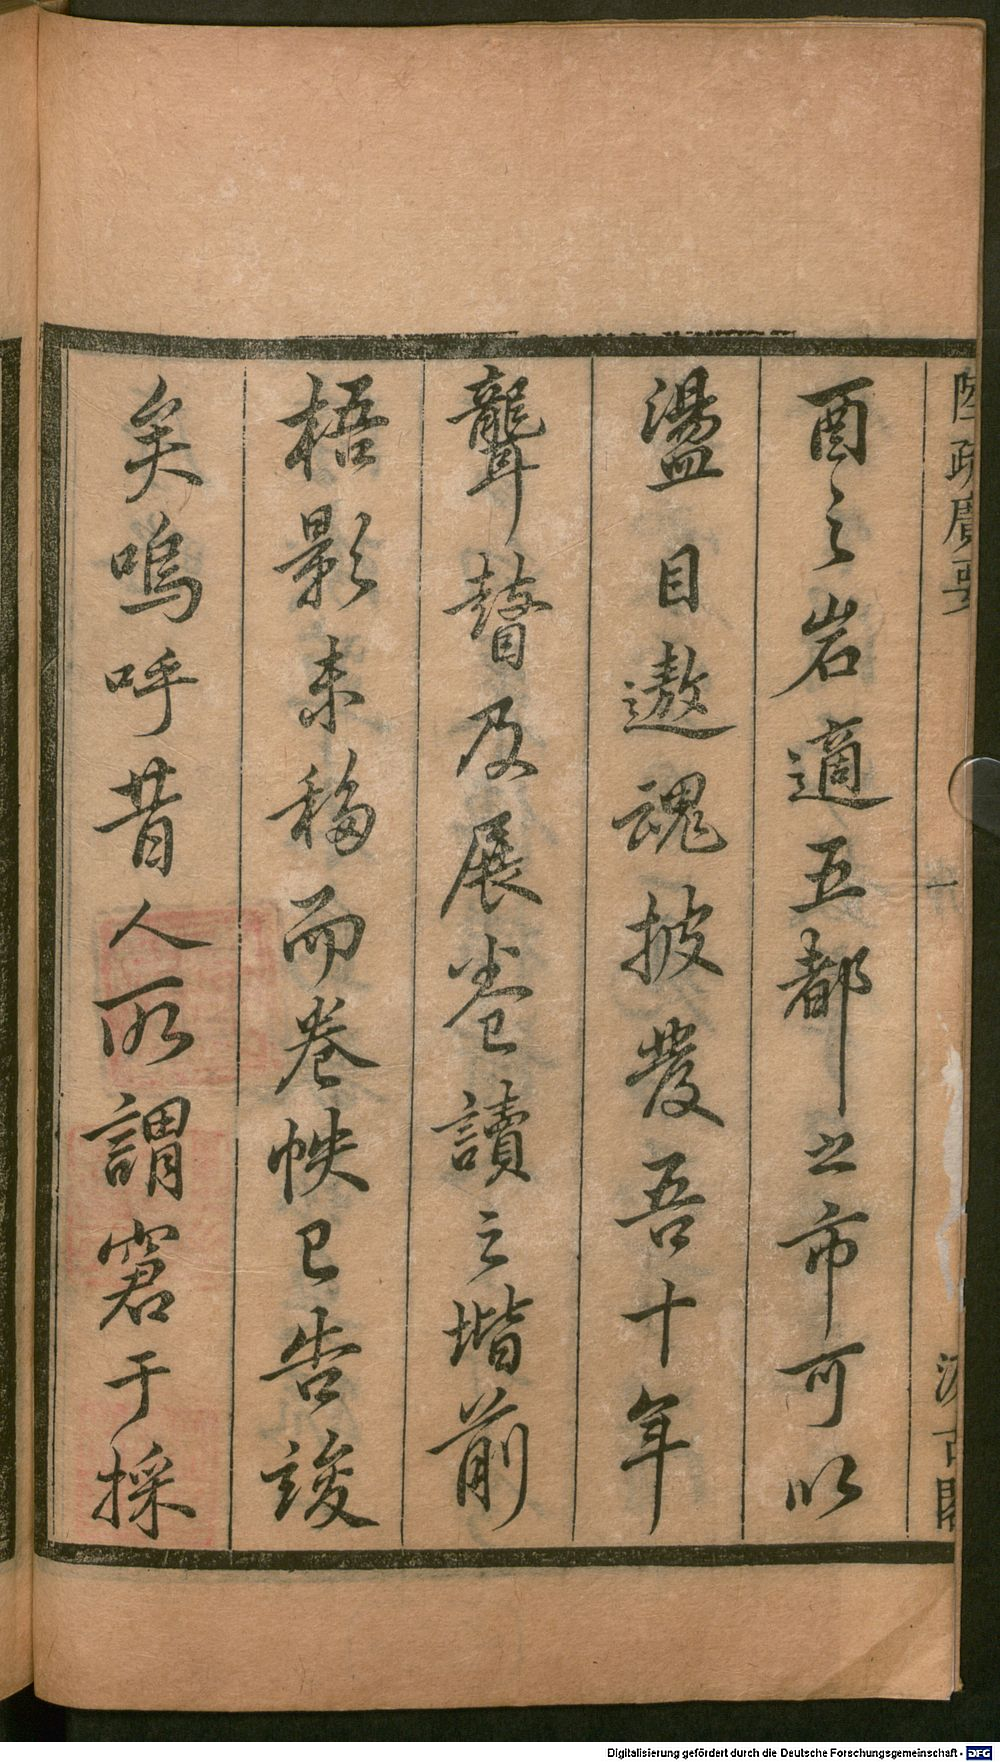 陸疏廣要
一
汲古閣
酉之岩適五都之市可以
盪目遨魂披發吾十年
聾瞽及展卷讀之堦前
梧影未移而卷帙已告竣
矣嗚呼昔人所謂窘于採
Digitalisierung gefördert durch die Deutsche Forschungsgemeinschaft - DFG